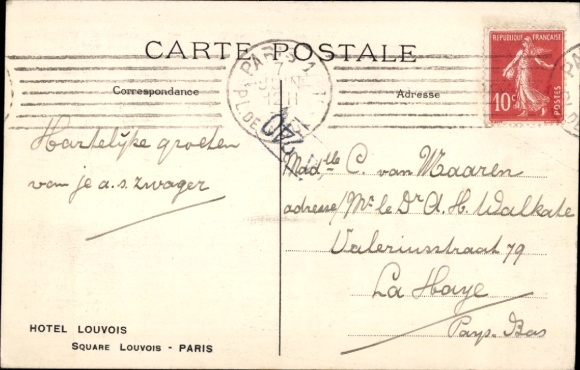 CARTE POSTALE
REPUBLIQUE FRANÇAISE
10c
POSTES
PARIS
Correspondance
Adresse
Hartelijke groeten
van je a.s. zwager
Madlle C. van Maaren
adresse/Mr. le Dr A. H. Walkate
Valeriusstraat 79
La Haye
Pays-Bas
HOTEL LOUVOIS
SQUARE LOUVOIS - PARIS